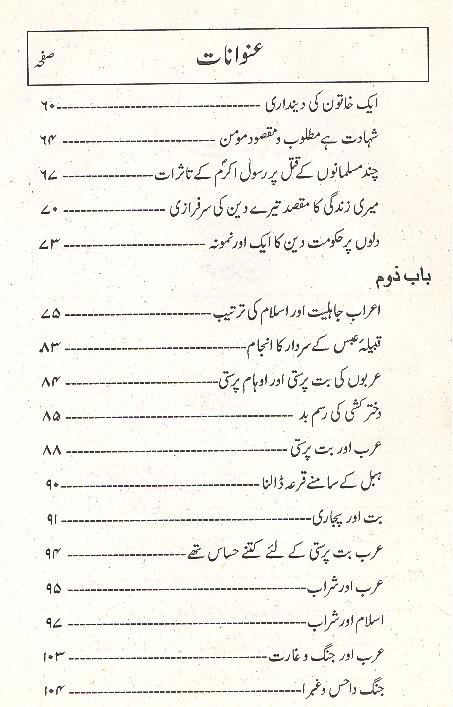 عنوانات صفحہ
ایک خاتون کی دینداری ---------- ۶۰
شہادت ہے مطلوب و مقصود مومن ---------- ۶۴
چند مسلمانوں کے قتل پر رسول اکرمؐ کے تاثرات ---------- ۶۷
میری زندگی کا مقصد تیرے دین کی سرفرازی ---------- ۷۰
دلوں پر حکومت دین کا ایک اور نمونہ ---------- ۷۳
باب دوم
اعراب جاہلیت اور اسلام کی ترتیب ---------- ۷۵
قبیلۂ عبس کے سردار کا انجام ---------- ۸۳
عربوں کی بت پرستی اور اوہام پرستی ---------- ۸۴
دختر کشی کی رسم بد ---------- ۸۵
عرب اور بت پرستی ---------- ۸۸
ہبل کے سامنے قرعہ ڈالنا ---------- ۹۰
بت اور پجاری ---------- ۹۱
عرب بت پرستی کے لئے کتنے حساس تھے ---------- ۹۴
عرب اور شراب ---------- ۹۵
اسلام اور شراب ---------- ۹۷
عرب اور جنگ و غارت ---------- ۱۰۳
جنگ داحس وغبرا ---------- ۱۰۴